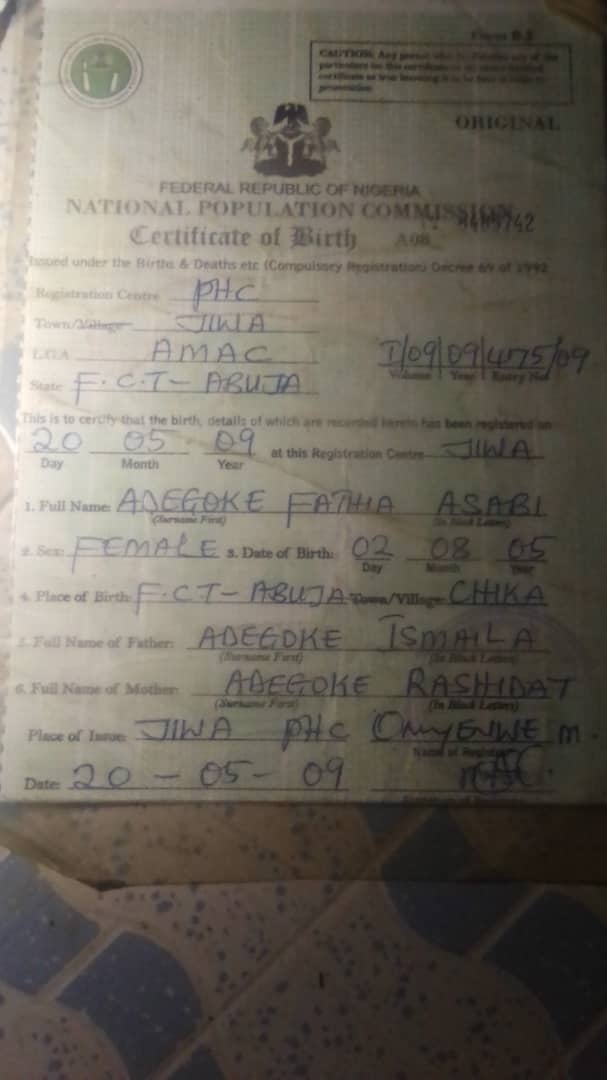 CAUTION: Any person who
particulars
certificate as true knowing it to be false
prosecution
ORIGINAL
FEDERAL REPUBLIC OF NIGERIA
NATIONAL POPULATION COMMISSION
Certificate of Birth
Issued under the Births & Deaths etc (Compulsory Registration) Decree 69 of 1992
Registration Centre PHC
Town/Village JIWA
LGA AMAC
State F.C.T - ABUJA
Volume Year Entry No
This is to certify that the birth, details of which are recorded herein has been registered on
20 05 09 at this Registration Centre JIWA
Day Month Year
1. Full Name: ADEGOKE FATHIA ASABI
(Surname First) (In Block Letters)
2. Sex: FEMALE 3. Date of Birth: 02 08 05
Day Month Year
4. Place of Birth: F.CT- ABUJA Town/Village CHIKA
5. Full Name of Father: ADEGOKE ISMAILA
(Surname First) (In Block Letters)
6. Full Name of Mother: ADEGOKE RASHIDAT
(Surname First) (In Block Letters)
Place of Issue: JIWA PHC
Name of Registrar
Date: 20 - 05 - 09